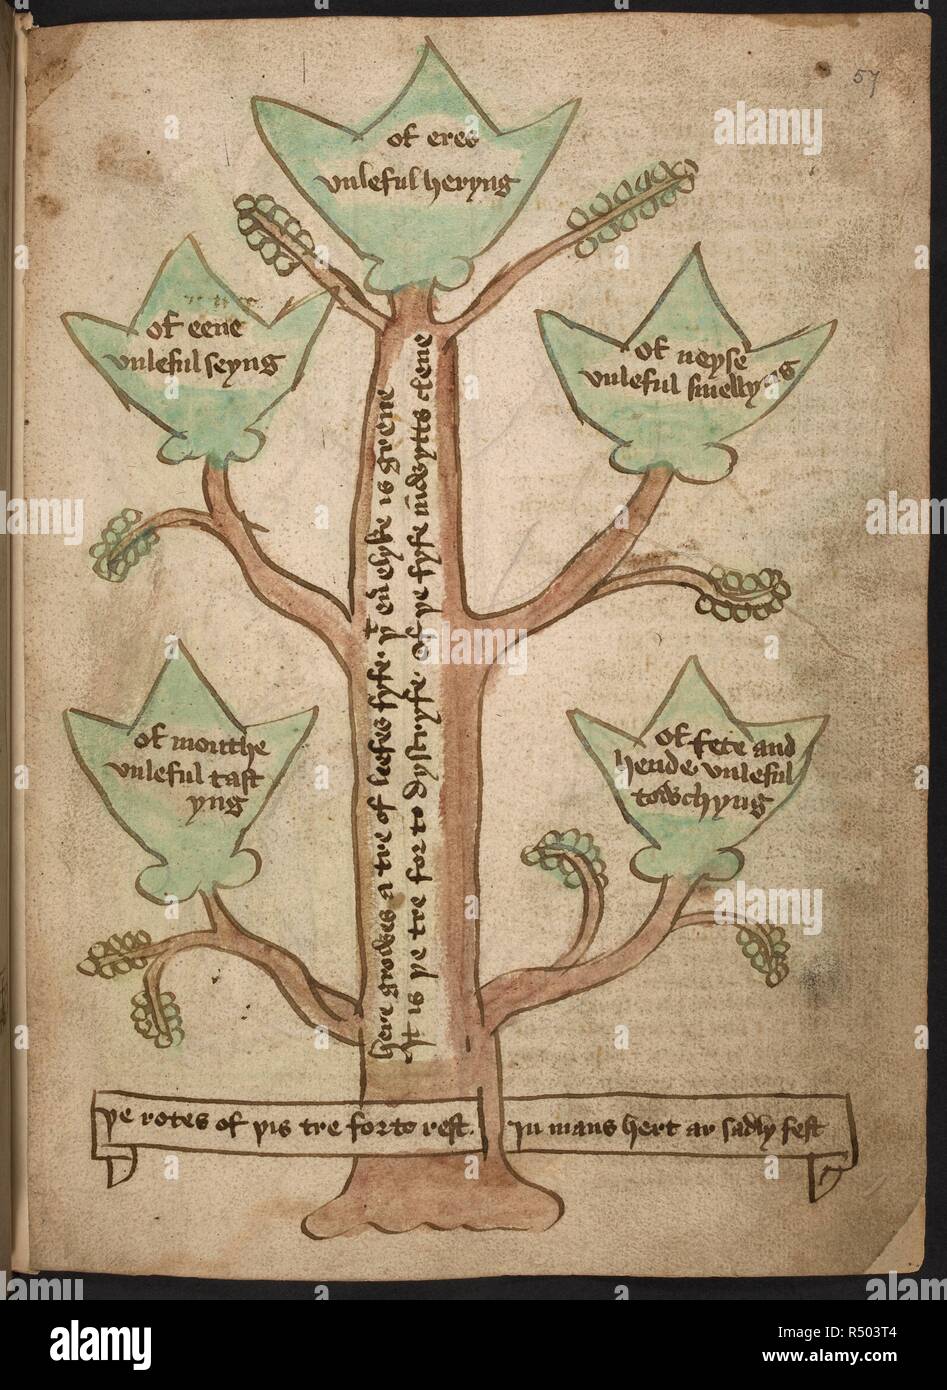 57
of eres
vnleful heryng
of eene
vnleful seyng
of neyse
vnleful smellyng
of mouthe
vnleful tast
yng
of fete and
hende vnleful
towchyng
here growes a tre of leefes fyfe. þt euelyke is grene
It is þe tre for to dystryfe. Of þe fyfe inwytts clene
þe rotes of þis tre for to rest. In mans hert ar sadly fest
a
alamy stock photo
R503T4
www.alamy.com